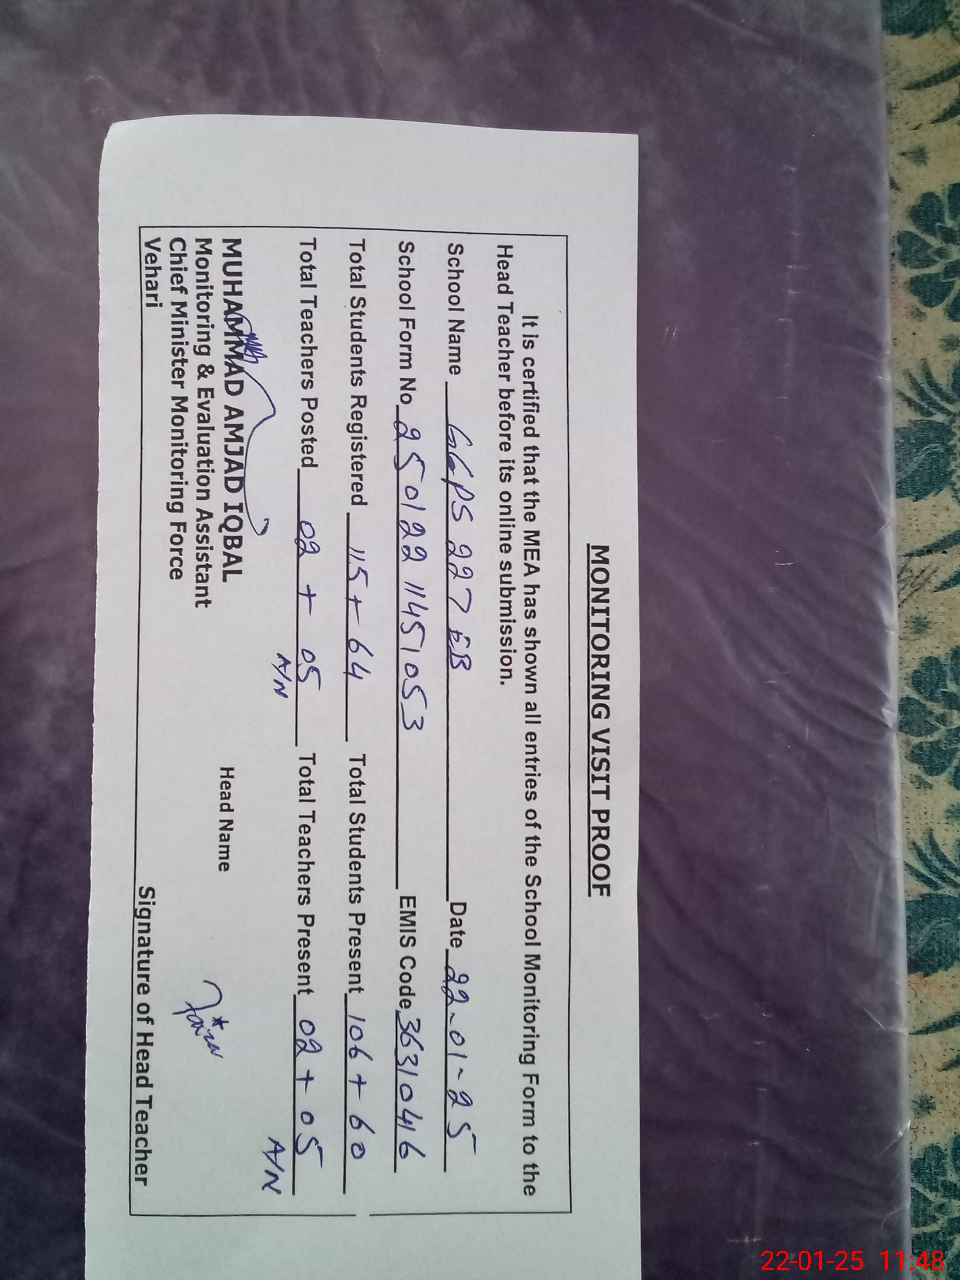 MONITORING VISIT PROOF
It is certified that the MEA has shown all entries of the School Monitoring Form to the
Head Teacher before its online submission.
School Name GGPS 227 EB Date 22-01-25
School Form No 250122 11451053 EMIS Code 36310416
Total Students Registered 115+64 Total Students Present 106+60
Total Teachers Posted 02+05 Total Teachers Present 02+05
A/N A/N
MUHAMMAD AMJAD IQBAL Head Name
Monitoring & Evaluation Assistant
Chief Minister Monitoring Force
Vehari Signature of Head Teacher
22-01-25 11:48